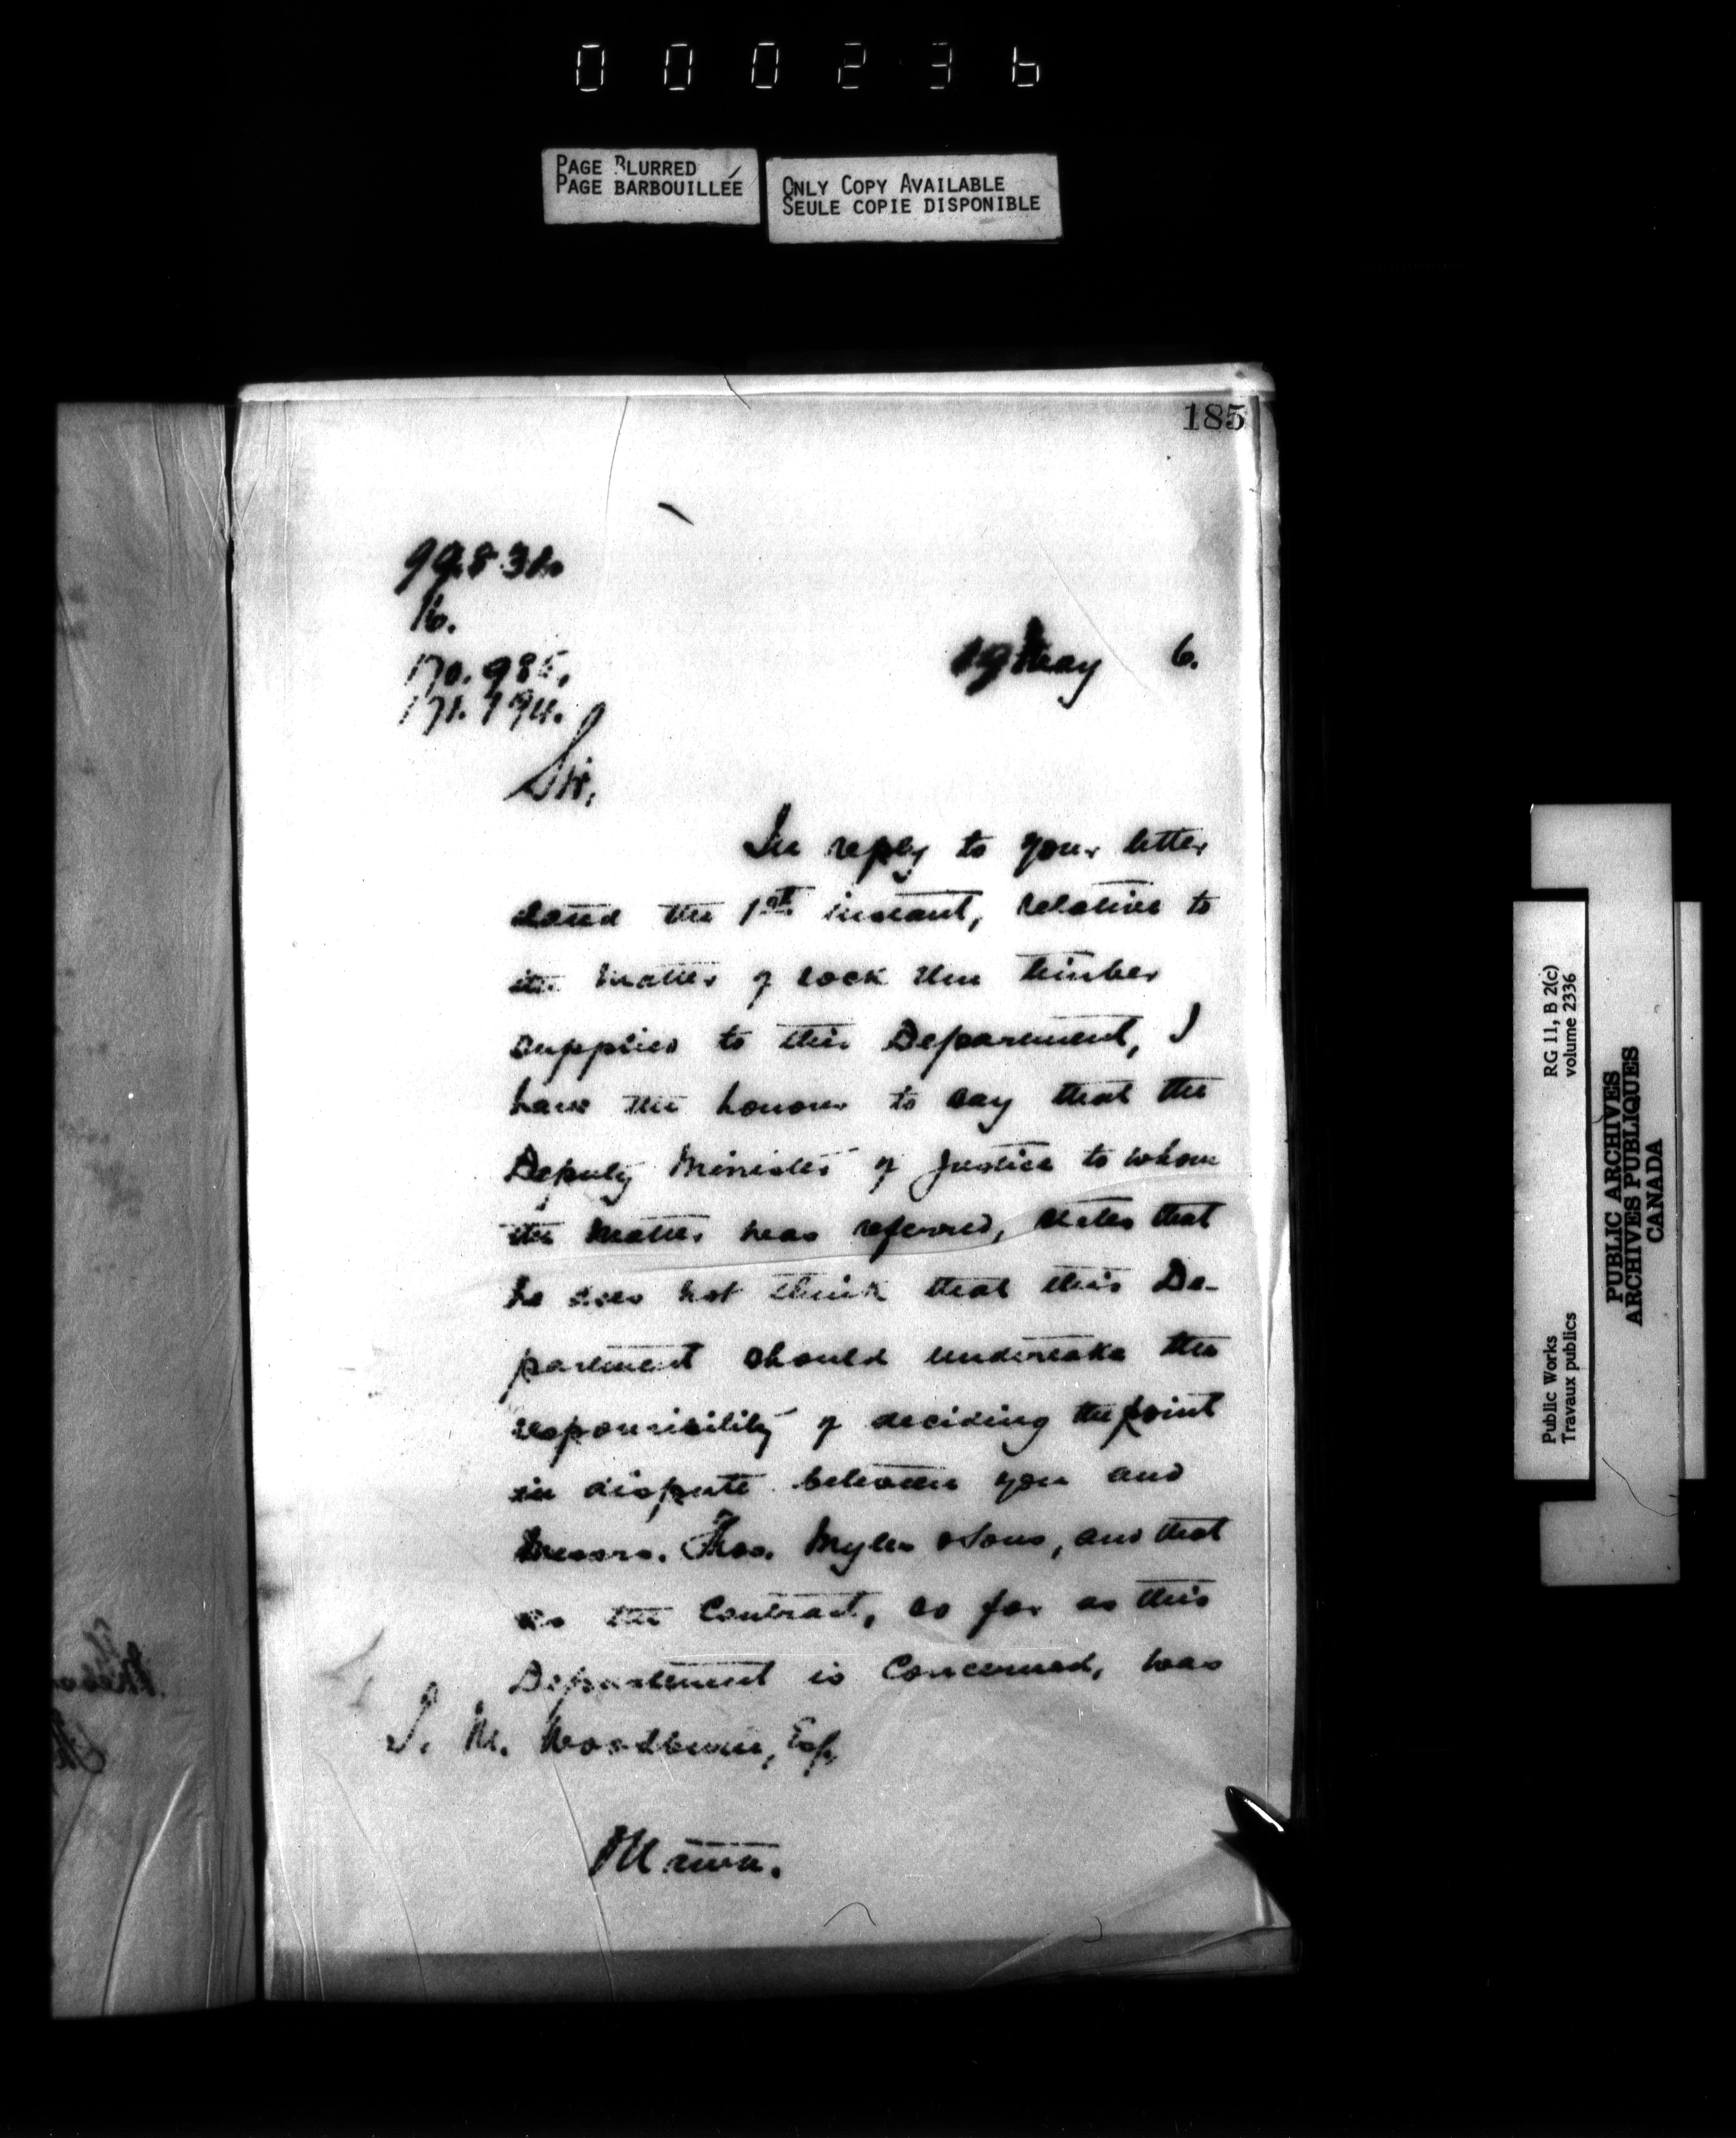 000236
PAGE BLURRED
PAGE BARBOUILLÉE
ONLY COPY AVAILABLE
SEULE COPIE DISPONIBLE
185
16.
170.985.
19 May 6.
Sir,
In reply to your letter
dated the 1st instant, relative to
the matter of rock elm timber
supplied to this Department, I
have the honour to say that the
Deputy Minister of Justice to whom
the matter was referred, states that
he does not think that this De-
partment should undertake the
responsibility of deciding the point
in dispute between you and
Messrs. Thos. Myles & Sons, and that
as the Contract, so far as this
Department is Concerned, was
M. Woodburn, Esq,
Ottawa.
RG 11, B 2(c)
volume 2336
Public Works
Travaux publics
PUBLIC ARCHIVES
ARCHIVES PUBLIQUES
CANADA